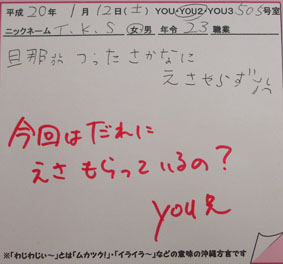 平成20年 1月12日(土) YOU・YOU2・YOU3 505号室
ニックネーム T.K.S 女・男 年令 23 職業
旦那… つったさかなに
えさやらず…
今回はだれに
えさもらっているの?
you兄
※「わじわじぃ～」とは「ムカツク!」・「イライラ～」などの意味の沖縄方言です